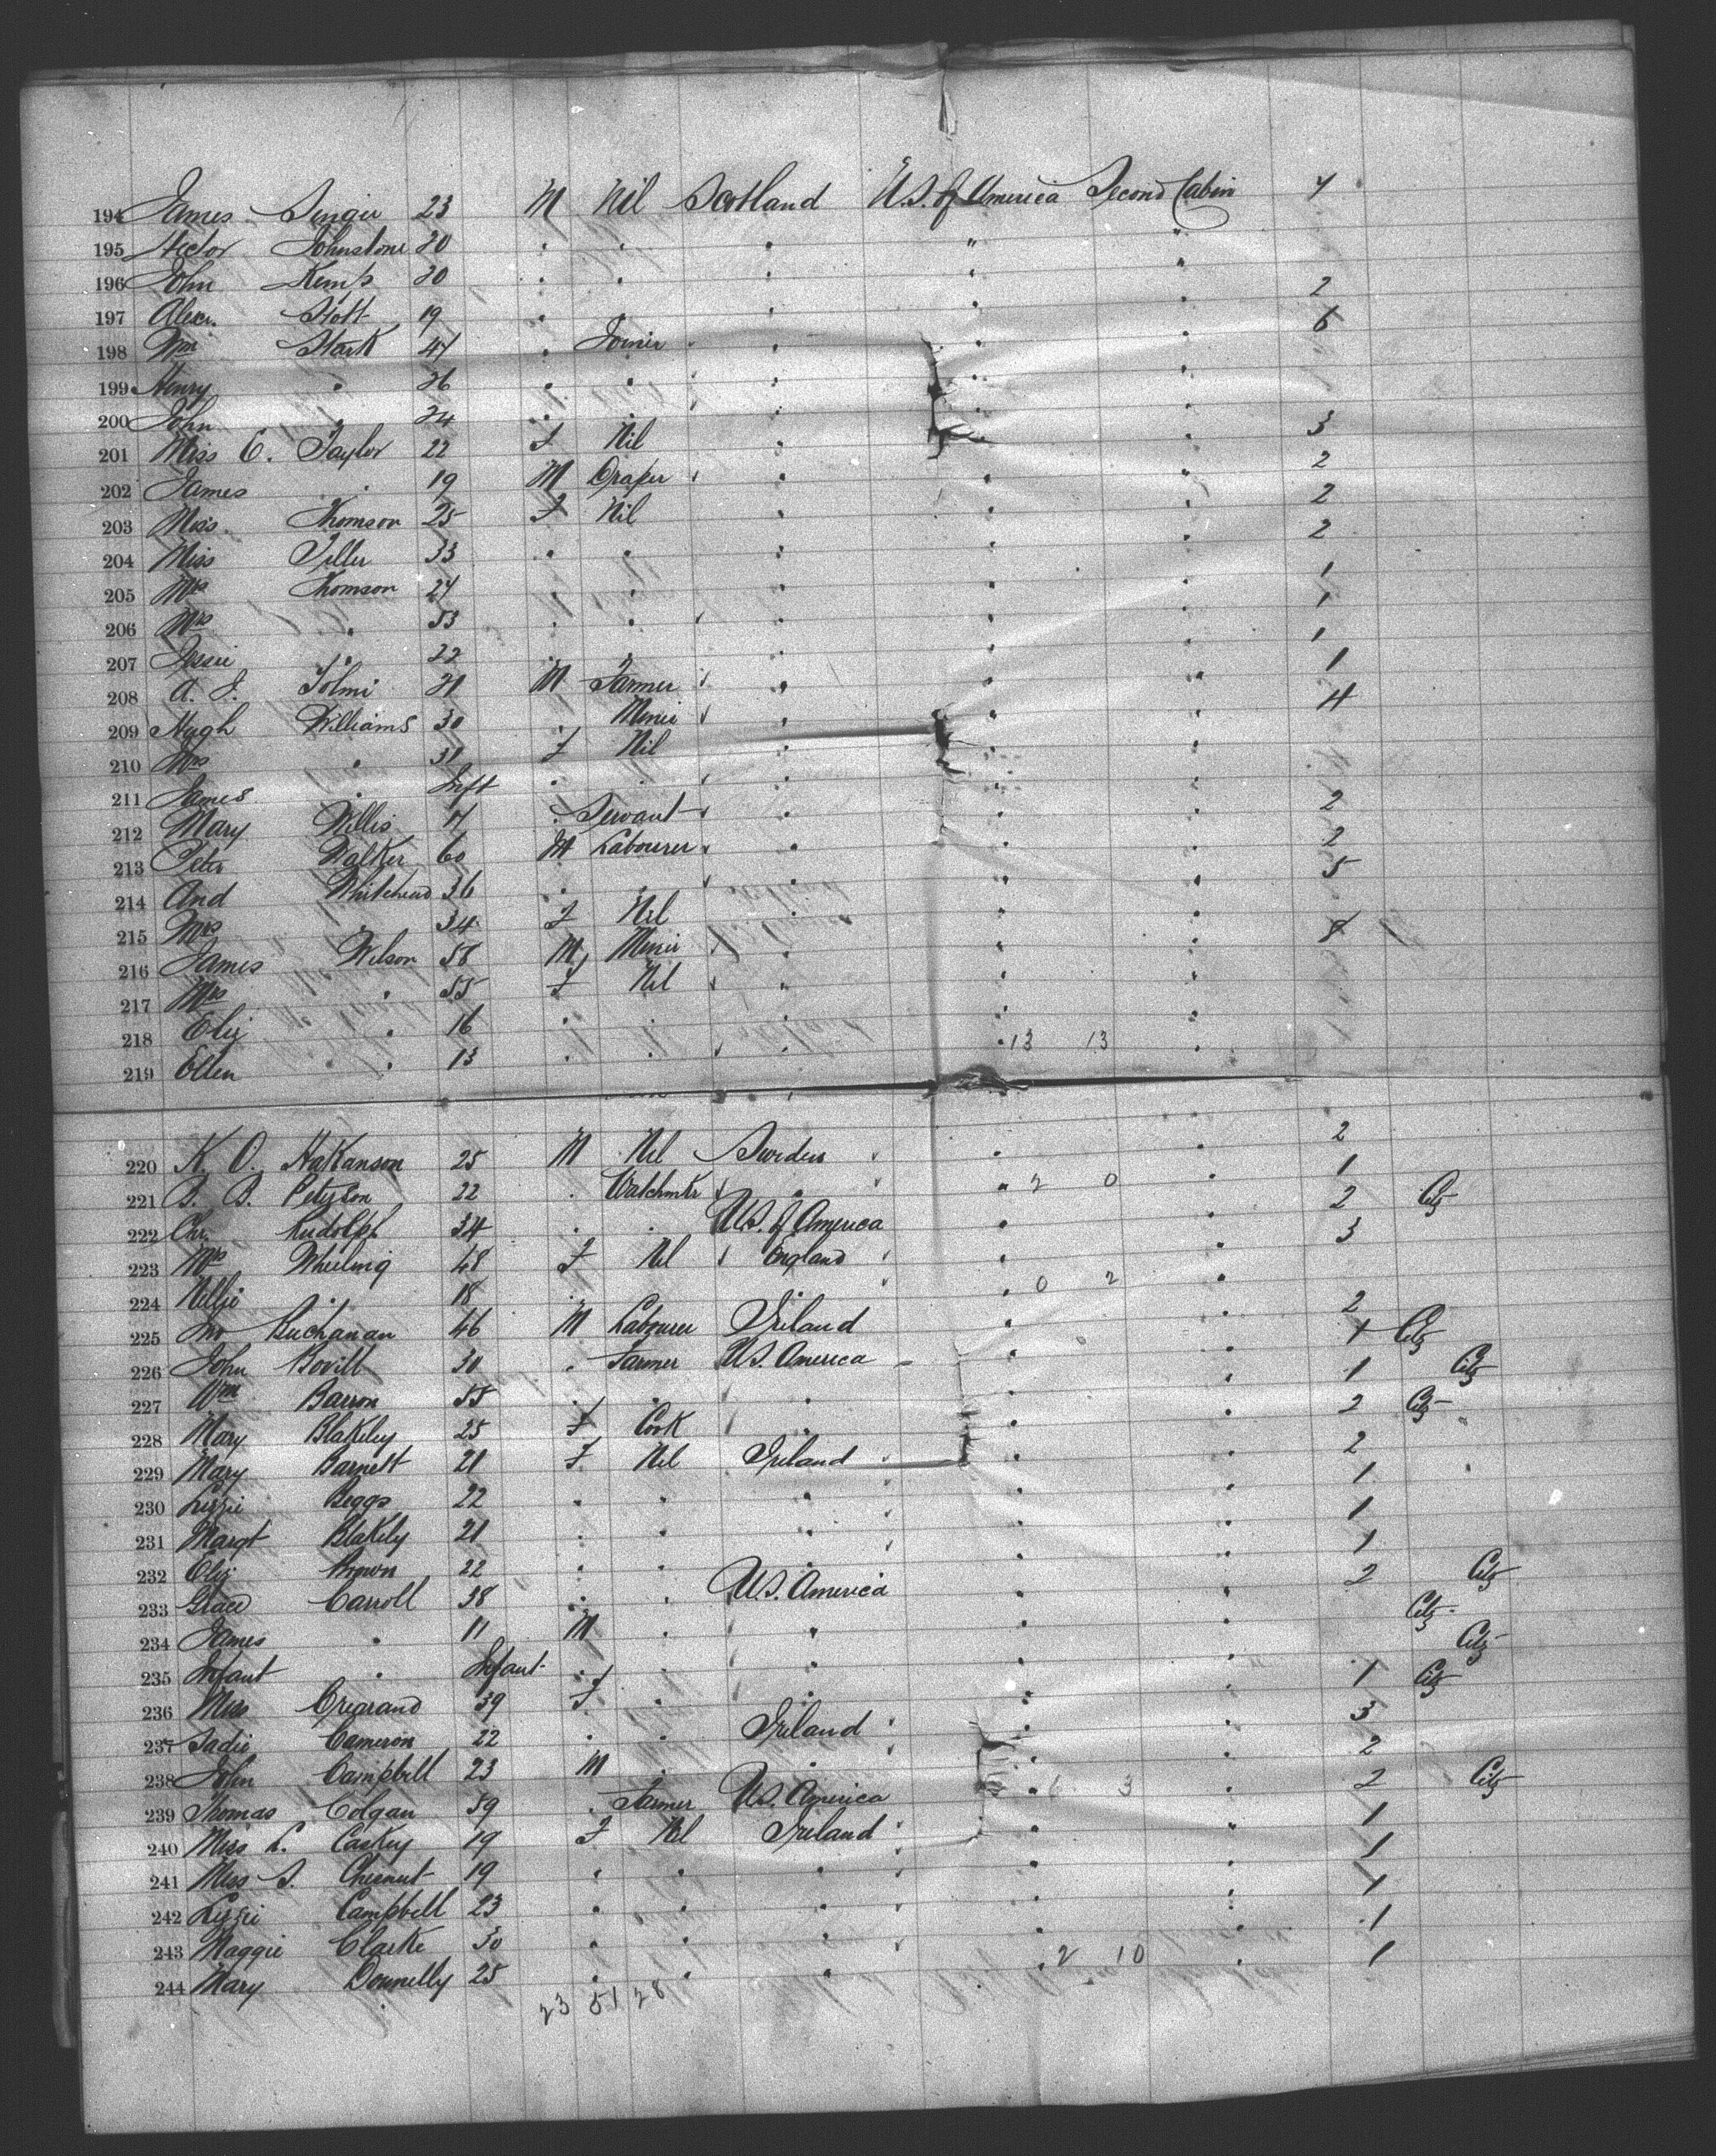 194 James Singer 23 M Nil Scotland U.S. of America Second Cabin
195 Hector Johnstone 20 " " " " "
196 John Kemp 20 " " " " " 2
197 Alexr. Stott 19 " " " " 6
198 Wm Stark 47 " Joiner " " "
199 Henry " 26 " " " " "
200 John " 24 " " " " " 3
201 Miss C. Taylor 22 F Nil " " " 2
202 James " 19 M Draper " " " 2
203 Miss Thomson 25 F Nil " " " 2
204 Miss 33 " " " " " 1
205 Mrs Thomson 24 " " " " " 1
206 Mrs " 53 " " " " " 1
207 Jessie " 22 " " " " " 1
208 A. J. Tolmi 21 M Farmer " " " 4
209 Hugh Williams 30 " Miner " " "
210 Mrs " 31 F Nil " " "
211 James " Inft " " " " " 2
212 Mary Willis 17 " Servant " " " 2
213 Peter Walker 60 M Labourer " " " 5
214 And Whitehead 36 " " " " "
215 Mrs " 34 F Nil " " " 8
216 James Wilson 58 M Miner " " "
217 Mrs " 55 F Nil " " "
218 Eliz " 16 " " " " "
219 Ellen " 13 " " " " 13 13 "
220 K. O. Hakanson 25 M Nil Sweden " " 2
221 B. B. Peterson 22 " Watchmkr " " 2 0 " 1
222 Chr. Rudolph 34 " " U.S. of America " " 2 Citz
223 Mrs Wheeling 48 F Nil England " " 3
224 Nellie " 18 " " " " 0 2 "
225 Jno Buchanan 46 M Labourer Ireland " " 2
226 John Bovill 30 " Farmer U.S. America " " 1 Citz
227 Wm Barron 55 " " " " " 1 Citz
228 Mary Blakeley 25 F Cook " " " 2 Citz
229 Mary Barnett 21 F Nil Ireland " " 2
230 Lizzie Beggs 22 " " " " " 1
231 Margt Blakely 21 " " " " " 1
232 Eliz Brown 22 " " " " " 1
233 Grace Carroll 38 " " U.S. America " " 2 Citz
234 James " 11 M " " " " Citz
235 Infant " Infant F " " " " Citz
236 Miss 39 F " " " " 1 Citz
237 Sadie Cameron 22 " " Ireland " " 3
238 John Campbell 23 M " " " " 2
239 Thomas Colgan 59 " Farmer U.S. America " 6 3 " 2 Citz
240 Miss L. Caskey 19 F Nil Ireland " " 1
241 Miss S. Chesnut 19 " " " " " 1
242 Lizzie Campbell 23 " " " " " 1
243 Maggie Clarke 30 " " " " " 1
244 Mary Donnelly 25 " " " " 2 10 " 1
23 51 28